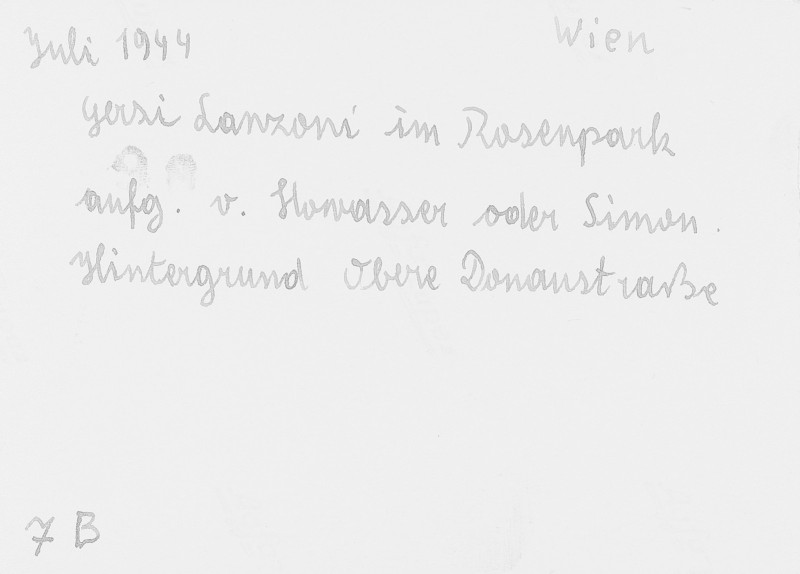 Juli 1944 Wien
Gersi Lanzoni im Rosenpark
aufg. v. Howasser oder Simon.
Hintergrund Obere Donaustraße
7 B